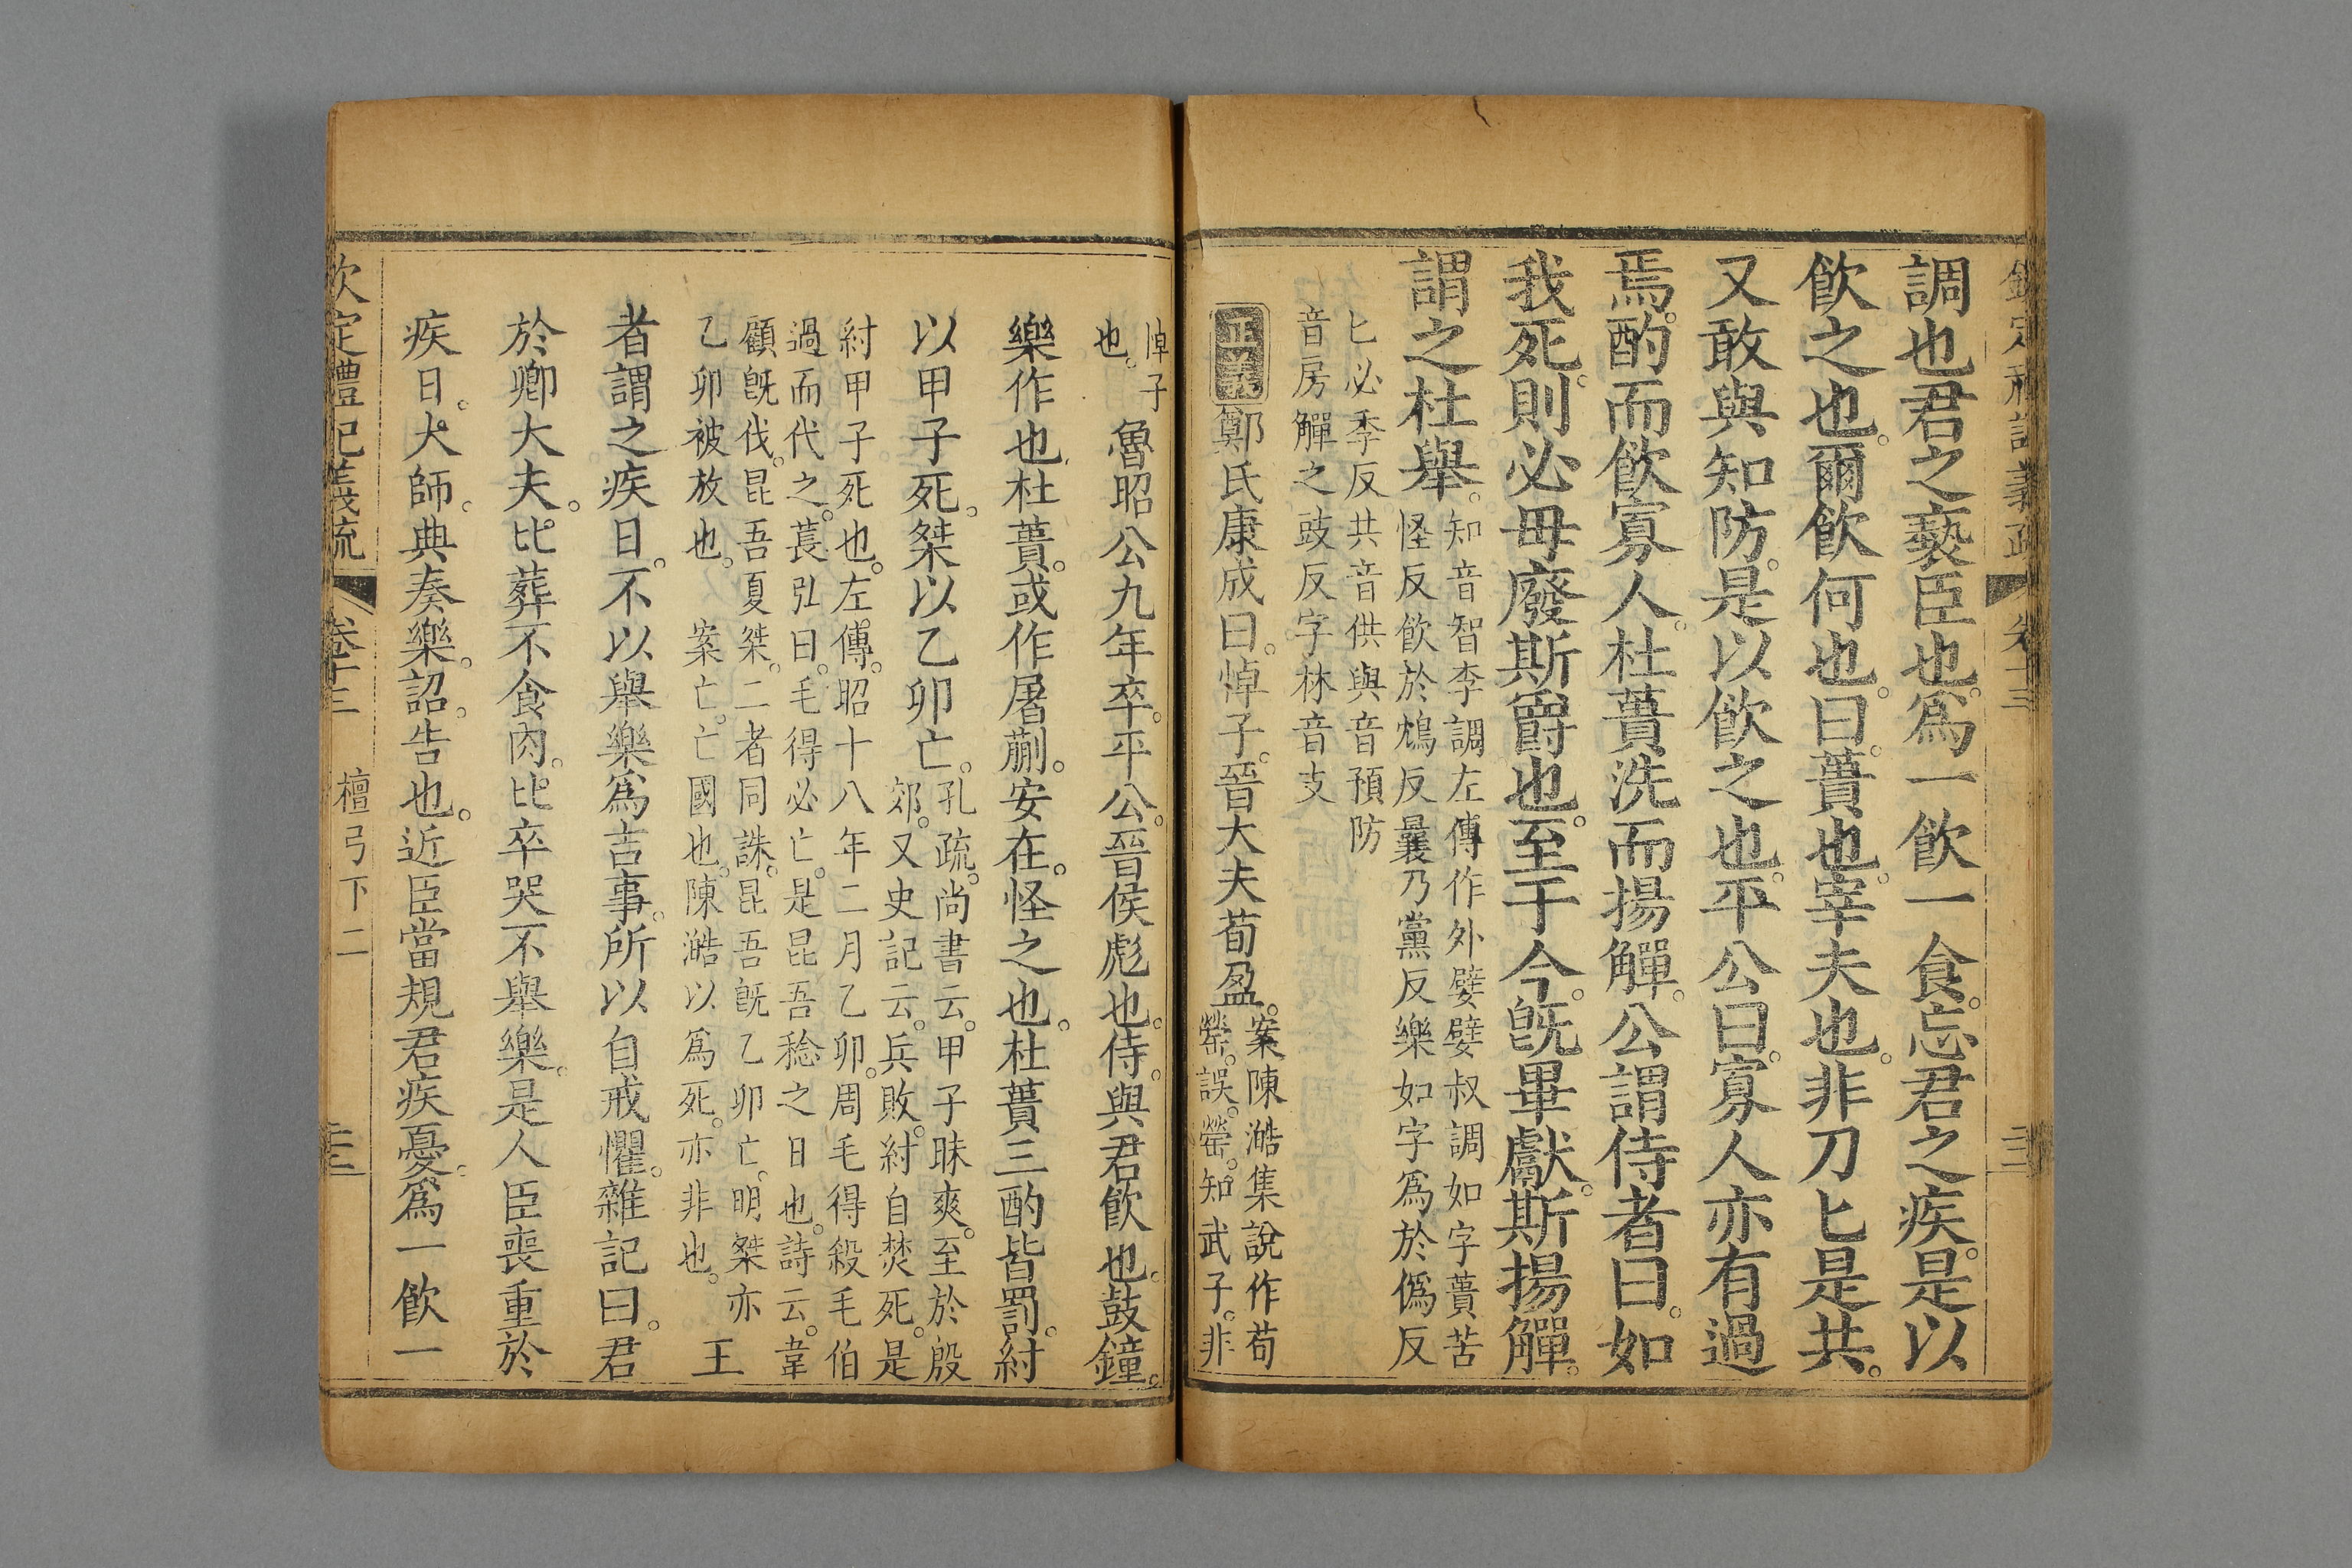 調也君之褻臣也爲一飲一食忘君之疾是以
飲之也爾飲何也曰蕢也宰夫也非刀匕是共
又敢與知防是以飲之也平公曰寡人亦有過
焉酌而飲寡人杜蕢洗而揚觶公謂侍者曰如
我死則必毋廢斯爵也至于今旣畢獻斯揚觶
謂之杜舉
知音智李調左傳作外嬖嬖叔調如字蕢苦
怪反飲於鴆反曩乃黨反樂如字爲於僞反
匕必季反共音供與音預防
音房觶之豉反字林音支
正義鄭氏康成曰悼子晉大夫荀盈
案陳澔集說作荀
罃誤罃知武子非
悼子
也
魯昭公九年卒平公晉侯彪也侍與君飲也鼓鐘
樂作也杜蕢或作屠蒯安在怪之也杜蕢三酌皆罰紂
以甲子死桀以乙卯亡
孔疏尚書云甲子昧爽至於殷
郊又史記云兵敗紂自焚死是
紂甲子死也左傳昭十八年二月乙卯周毛得殺毛伯
過而代之萇弘曰毛得必亡是昆吾稔之日也詩云韋
顧旣伐昆吾夏桀二者同誅昆吾旣乙卯亡明桀亦
乙卯被放也 案亡亡國也陳澔以爲死亦非也
王
者謂之疾日不以舉樂爲吉事所以自戒懼雜記曰君
於卿大夫比葬不食肉比卒哭不舉樂是人臣喪重於
疾日大師典奏樂詔告也近臣當規君疾憂爲一飲一
欽定禮記義疏 卷十三 檀弓下二